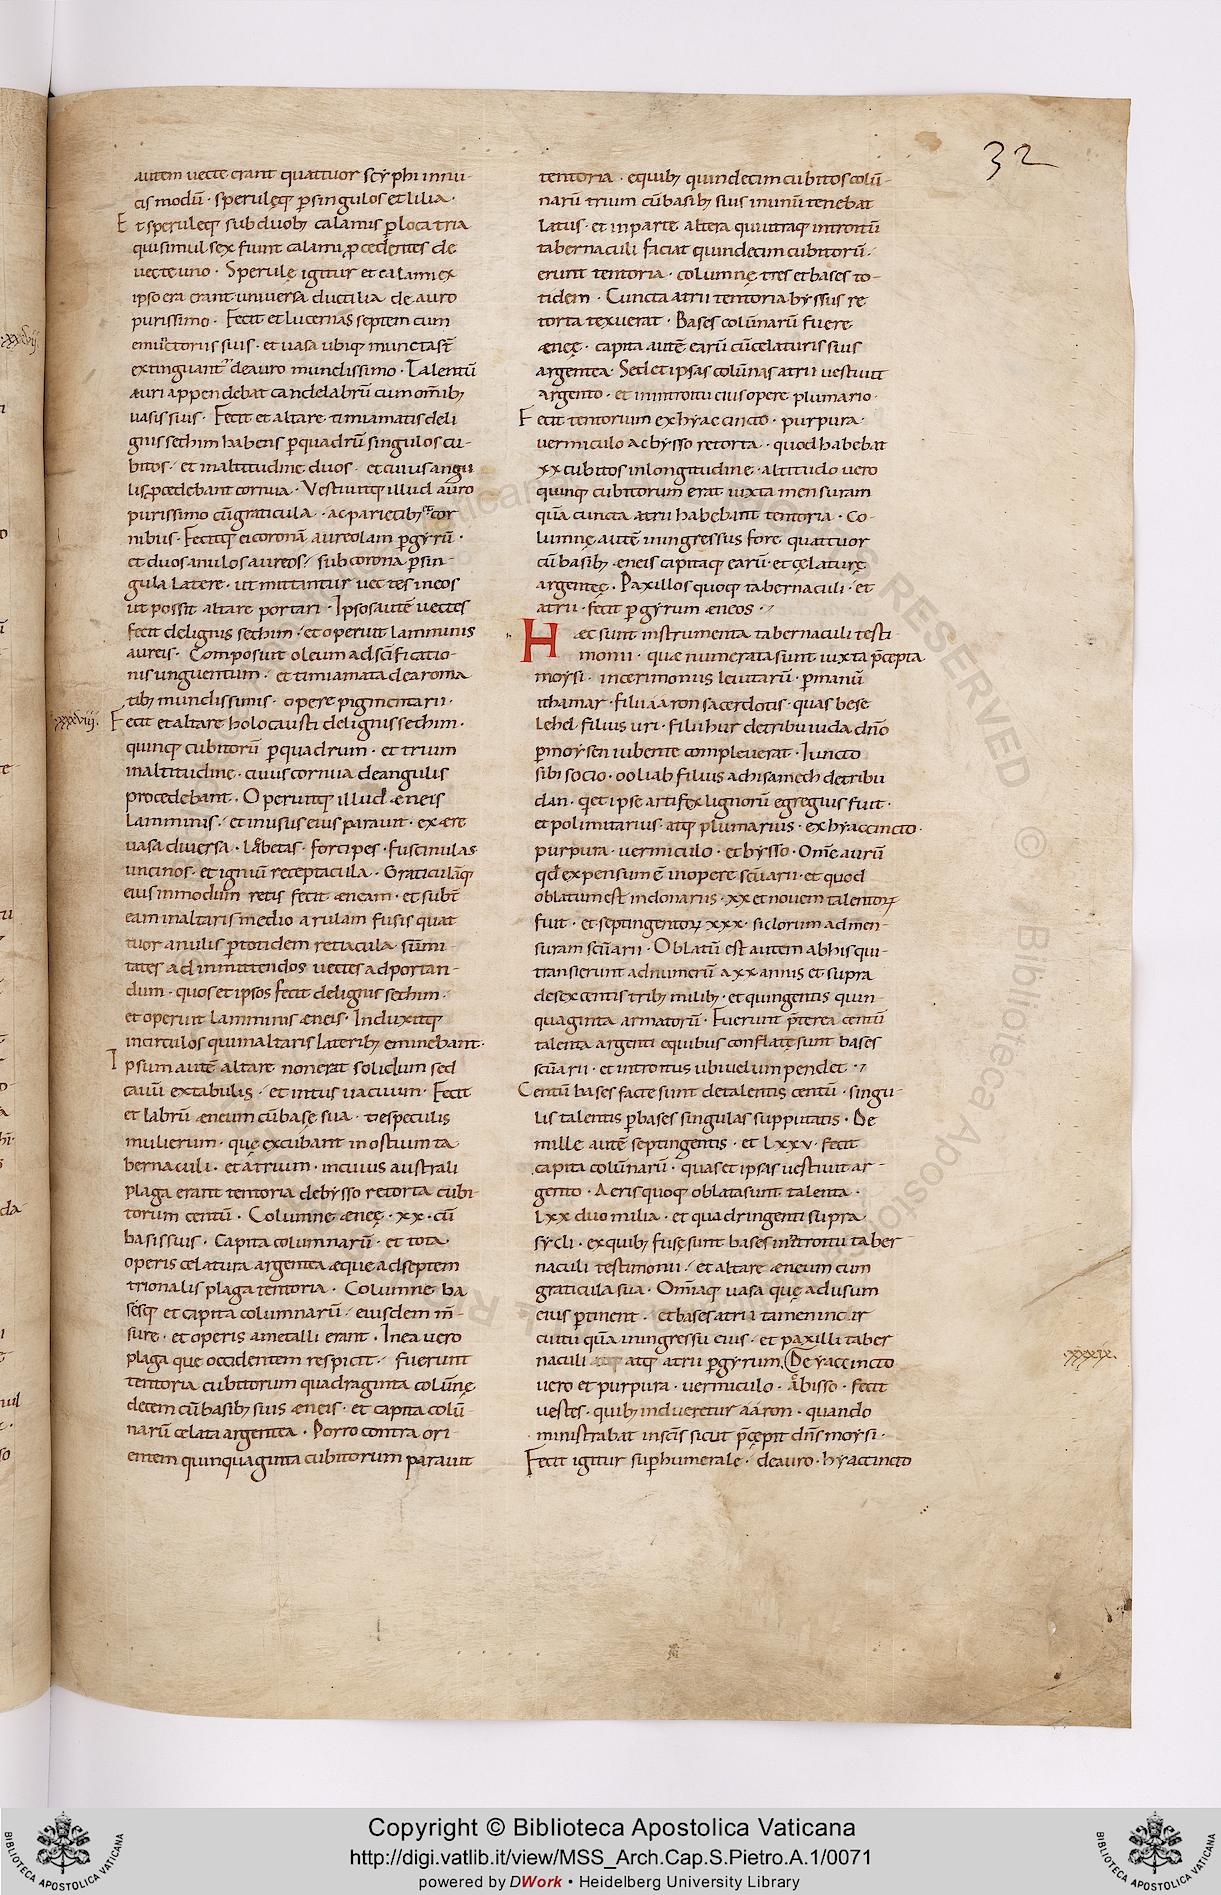 32
autem uecte erant quattuor scyphi innu-
cis modū · sperulęq; p singulos et lilia ·
Et sperule q; sub duob; calamis p loca tria
qui simul sex fiunt calami pcedentes de
uecte uno · Sperulę igitur et calami ex
ipso era erant uniuersa ductilia de auro
purissimo · Fecit et lucernas septem cum
emunctoriis suis · et uasa ubiq; munctast̄
extinguant deauro mundissimo · Talentū
auri appendebat candelabrū cum om̄ib;
uasis suis · Fecit et altare timiamatis deli
gnis sethim habens p quadrū singulos cu-
bitos · et in altitudine duos · et cuius angu
lis pcedebant cornua · Vestiuitq; illud auro
purissimo cū graticula · ac parietib; et cor
nibus · Fecitq; ei coronā aureolam p gyrū ·
et duos anulos aureos · sub corona p sin-
gula latere · ut mittantur uectes in eos
ut possit altare portari · Ipsos autē uectes
fecit de lignis sethim · et operuit lamminis
aureis · Composuit oleum ad sc̄ificatio-
nis unguentum · et timiamata de aroma
tib; mundissimis · opere pigmentarii ·
xxxviii.
Fecit et altare holocausti de lignis sethim ·
quinq; cubitorū p quadrum · et trium
in altitudine · cuius cornua de angulis
procedebant · Operuitq; illud æneis
lamminis · et in usus eius parauit · ex ære
uasa diuersa · lebetas · forcipes · fuscinulas
uncinos · et igniū receptacula · Graticulāq;
eius in modum retis fecit æneam · et subt̄
eam in altaris medio arulam fusis quat
tuor anulis p totidem retiacula sūmi-
tates ad inmittendos uectes ad portan-
dum · quos et ipsos fecit de lignis sethim ·
et operuit lamminis æneis · Induxitq;
in circulos qui in altaris laterib; eminebant ·
Ipsum autē altare non erat solidum sed
cauū ex tabulis · et intus uacuum · Fecit
et labrū æneum cū basę sua · de speculis
mulierum · quę excubant in ostium ta-
bernaculi · et atrium · in cuius australi
plaga erant tentoria de bysso retorta cubi-
torum centū · Columne æneę · xx · cū
basis suis · Capita columnarū · et tota
operis celatura argentea æque ad septem
trionalis plaga tentoria · Columne ba
sesq; et capita columnarū · eiusdem m̄-
sure · et operis a metalli erant · In ea uero
plaga que occidentem respicit · fuerunt
tentoria cubitorum quadraginta colūnę
decem cū basib; suis æneis · et capita colū-
narū celata argentea · Porro contra ori-
entem quinquaginta cubitorum parauit
tentoria · e quib; quindecim cubitos colū-
narū trium cū basib; suis in unū tenebat
latus · et in parte altera qui utraq; introitū
tabernaculi faciat quindecim cubitorū ·
erunt tentoria · columnę tres et bases to-
tidem · Cuncta atrii tentoria byssus re
torta texuerat · Bases colūnarū fuere
æneę · capita autē earū cū celaturis suis
argentea · Sed et ipsas colūnas atrii uestiuit
argento · et in introitu eius opere plumario ·
Fecit tentorium ex hyaccincto · purpura ·
uermiculo ac bysso retorta · quod habebat
xx cubitos in longitudine · altitudo uero
quinq; cubitorum erat iuxta mensuram
quā cuncta atrii habebant tentoria · Co-
lumnę autē in ingressus fore quattuor
cū basib; æneis capitaq; earū · et cęlaturę
argenteę · Paxillos quoq; tabernaculi · et
atrii · fecit p gyrum æneos ·
Hæc sunt instrumenta tabernaculi testi
monii · quæ numerata sunt iuxta p̄cepta
moysi · in cerimoniis leuitarū · p manū
ithamar · filii aaron sacerdotis · quas bese
lehel · filius uri · filii hur de tribu iuda dn̄o
p moysen iubente compleuerat · Iuncto
sibi socio · ooliab filius achisamech de tribu
dan · q et ipse artifex lignorū egregius fuit ·
et polimitarius atq; plumarius · ex hyaccincto ·
purpura · uermiculo · et bysso · Om̄e aurū
qd expensum ē in opere scūarii · et quod
oblatum est in donariis · xx et nouem talentoꝝ
fuit · et septingentoꝝ xxx · siclorum ad men-
suram scūarii · Oblatū est autem ab his qui
transierunt ad numerū a xx annis et supra
de sexcentis trib; milib; · et quingentis quin-
quaginta armatorū · Fuerunt p̄terea centū
talenta argenti e quibus conflatę sunt bases
scūarii · et introitus ubi uelum pendet ·
Centū bases facte sunt de talentis centū · singu-
lis talentis p bases singulas supputatis · De
mille autē septingentis · et lxxv · fecit
capita colūnarū · quas et ipsas uestiuit ar-
gento · Aeris quoq; oblata sunt talenta ·
lxx duo milia · et quadringenti supra
sycli · ex quib; fusę sunt bases in introitu taber
naculi testimonii · et altare æneum cum
graticula sua · Om̄iaq; uasa quę ad usum
eius ptinent · et bases atrii tam en in cir
cuitu quā in ingressu eius · et paxilli taber
naculi atq; atrii p gyrum · De yaccincto
xxxix.
uero et purpura · uermiculo · ac bisso · fecit
uestes · quib; indueretur aaron · quando
ministrabat in sc̄is sicut p̄cępit dn̄s moysi ·
Fecit igitur sup humerale · de auro · hyaccincto
Copyright © Biblioteca Apostolica Vaticana
http://digi.vatlib.it/view/MSS_Arch.Cap.S.Pietro.A.1/0071
powered by DWork • Heidelberg University Library
BIBLIOTECA APOSTOLICA VATICANA
BIBLIOTECA APOSTOLICA VATICANA